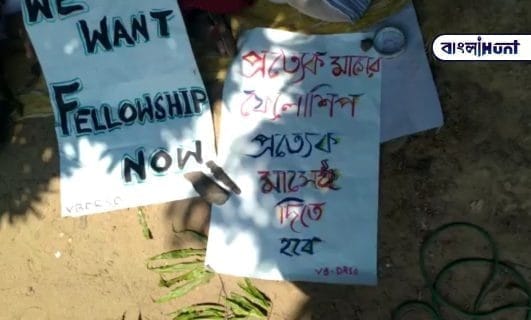 WE
WANT
FELLOWSHIP
NOW
VBDRSO
প্রত্যেক মাসের
ফেলোশিপ
প্রত্যেক
মাসেই
দিতে
হবে
VB-DRSO
বাংলাHunt